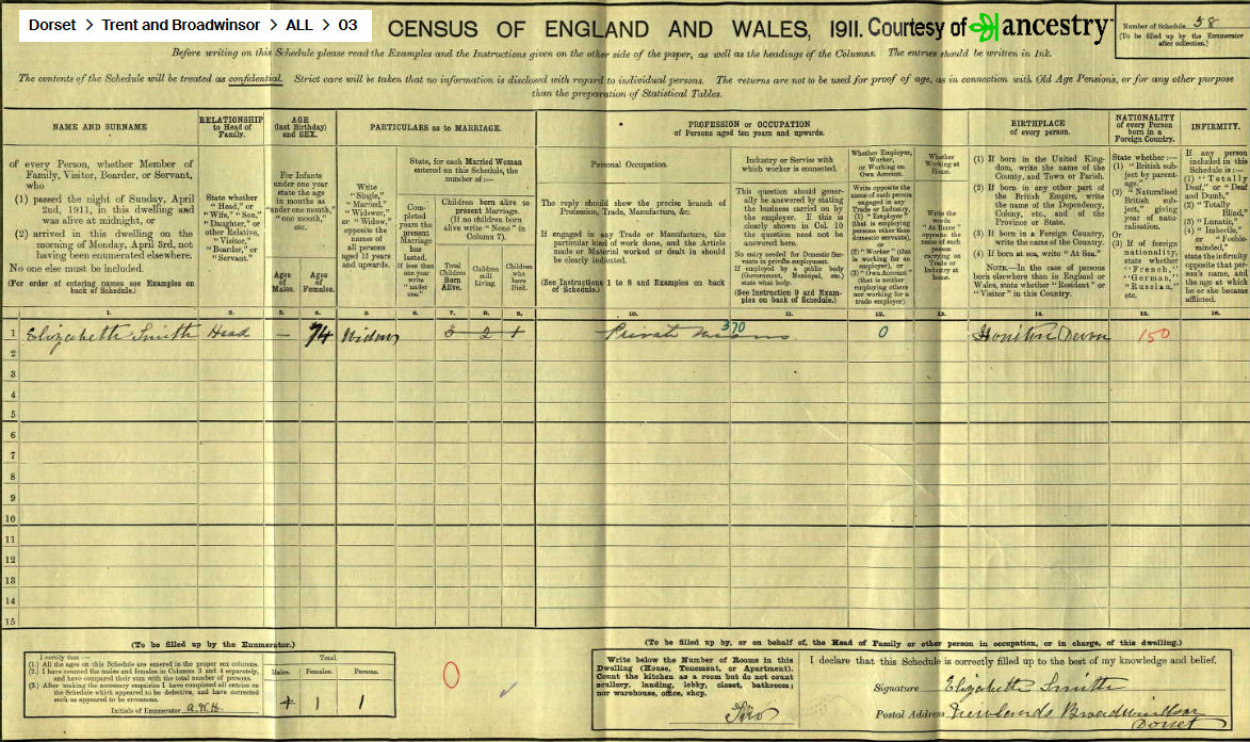 Dorset > Trent and Broadwinsor > ALL > 03
CENSUS OF ENGLAND AND WALES, 1911. Courtesy of ancestry
Number of Schedule 58
(To be filled up by the Enumerator
after collection.)
Before writing on this Schedule please read the Examples and the Instructions given on the other side of the paper, as well as the headings of the Columns. The entries should be written in Ink.
The contents of the Schedule will be treated as confidential. Strict care will be taken that no information is disclosed with regard to individual persons. The returns are not to be used for proof of age, as in connection with Old Age Pensions, or for any other purpose
than the preparation of Statistical Tables.
NAME AND SURNAME
of every Person, whether Member of
Family, Visitor, Boarder, or Servant,
who
(1) passed the night of Sunday, April
2nd, 1911, in this dwelling and
was alive at midnight, or
(2) arrived in this dwelling on the
morning of Monday, April 3rd, not
having been enumerated elsewhere.
No one else must be included.
(For order of entering names see Examples on
back of Schedule.)
RELATIONSHIP
to Head of
Family.
State whether
"Head," or
"Wife," "Son,"
"Daughter," or
other Relative,
"Visitor,"
"Boarder," or
"Servant."
AGE
(last Birthday)
and SEX.
For Infants
under one year
state the age
in months as
"under one month,"
"one month,"
etc.
Ages
of
Males.
Ages
of
Females.
PARTICULARS as to MARRIAGE.
Write
"Single,"
"Married,"
"Widower,"
or "Widow,"
opposite the
names of
all persons
aged 15 years
and upwards.
State, for each Married Woman
entered on this Schedule, the
number of :—
Com-
pleted
years the
present
Marriage
has
lasted.
If less than
one year
write
"under
one."
Children born alive to
present Marriage.
(If no children born
alive write "None" in
Column 7).
Total
Children
Born
Alive.
Children
still
Living.
Children
who
have
Died.
PROFESSION or OCCUPATION
of Persons aged ten years and upwards.
Personal Occupation.
The reply should show the precise branch of
Profession, Trade, Manufacture, &c.
If engaged in any Trade or Manufacture, the
particular kind of work done, and the Article
made or Material worked or dealt in should
be clearly indicated.
(See Instructions 1 to 8 and Examples on back
of Schedule.)
Industry or Service with
which worker is connected.
This question should gener-
ally be answered by stating
the business carried on by
the employer. If this is
clearly shown in Col. 10
the question need not be
answered here.
No entry needed for Domestic Ser-
vants in private employment.
If employed by a public body
(Government, Municipal, etc.)
state what body.
(See Instruction 9 and Exam-
ples on back of Schedule.)
Whether Employer,
Worker,
or Working on
Own Account.
Write opposite the
name of each person
engaged in any
Trade or Industry,
(1) "Employer"
(that is employing
persons other than
domestic servants),
or
(2) "Worker" (that
is working for an
employer), or
(3) "Own Account"
(that is neither
employing others
nor working for a
trade employer).
Whether
Working at
Home.
Write the
words
"At Home"
opposite the
name of each
person
carrying on
Trade or
Industry at
home.
BIRTHPLACE
of every person.
(1) If born in the United King-
dom, write the name of the
County, and Town or Parish.
(2) If born in any other part of
the British Empire, write
the name of the Dependency,
Colony, etc., and of the
Province or State.
(3) If born in a Foreign Country,
write the name of the Country.
(4) If born at sea, write "At Sea."
NOTE.—In the case of persons
born elsewhere than in England or
Wales, state whether "Resident" or
"Visitor" in this Country.
NATIONALITY
of every Person
born in a
Foreign Country.
State whether :—
(1) "British sub-
ject by parent-
age,"
(2) "Naturalised
British sub-
ject," giving
year of natu-
ralisation.
Or
(3) If of foreign
nationality,
state whether
"French,"
"German,"
"Russian,"
etc.
INFIRMITY.
If any person
included in this
Schedule is :—
(1) "Totally
Deaf," or "Deaf
and Dumb,"
(2) "Totally
Blind,"
(3) "Lunatic,"
(4) "Imbecile,"
or "Feeble-
minded,"
state the infirmity
opposite that per-
son's name, and
the age at which
he or she became
afflicted.
1. 2. 3. 4. 5. 6. 7. 8. 9. 10. 11. 12. 13. 14. 15. 16.
1 Elizabeth Smith Head – 74 Widow 3 2 1 Private Means 370 0 Honiton Devon 150
2
3
4
5
6
7
8
9
10
11
12
13
14
15
(To be filled up by the Enumerator.)
I certify that :—
(1.) All the ages on this Schedule are entered in the proper sex columns.
(2.) I have counted the males and females in Columns 3 and 4 separately,
and have compared their sum with the total number of persons.
(3.) After making the necessary enquiries I have completed all entries on
the Schedule which appeared to be defective, and have corrected
such as appeared to be erroneous.
Initials of Enumerator
Total
Males. Females. Persons.
1 1
0
(To be filled up by, or on behalf of, the Head of Family or other person in occupation, or in charge, of this dwelling.)
Write below the Number of Rooms in this
Dwelling (House, Tenement, or Apartment).
Count the kitchen as a room but do not count
scullery, landing, lobby, closet, bathroom;
nor warehouse, office, shop.
I declare that this Schedule is correctly filled up to the best of my knowledge and belief.
Signature Elizabeth Smith
Postal Address Newlands Broadwindsor
Dorset